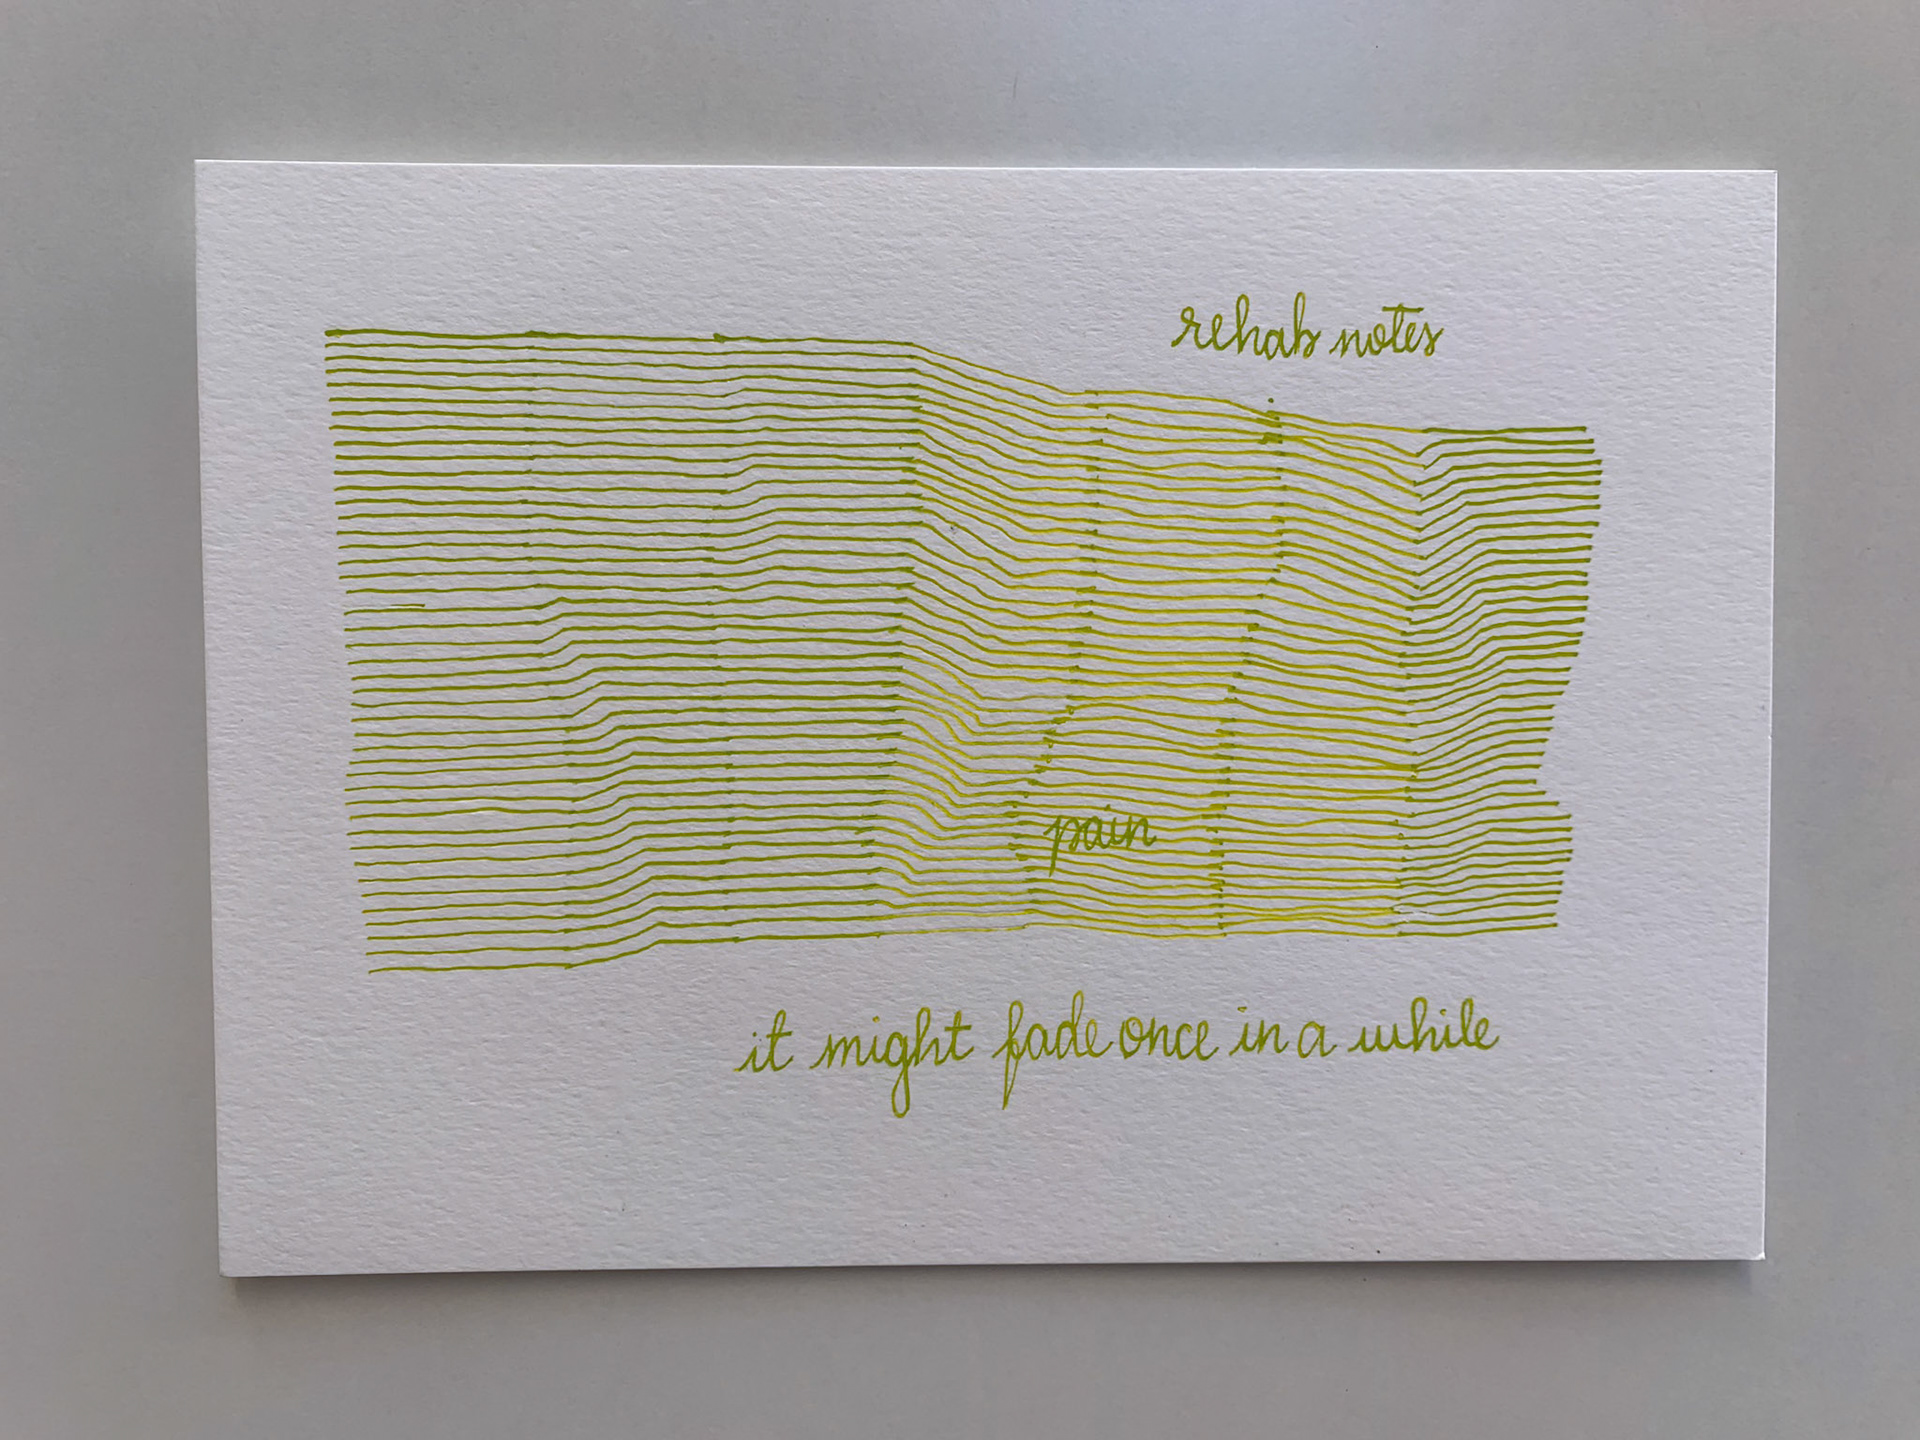 rehab notes
pain
it might fade once in a while